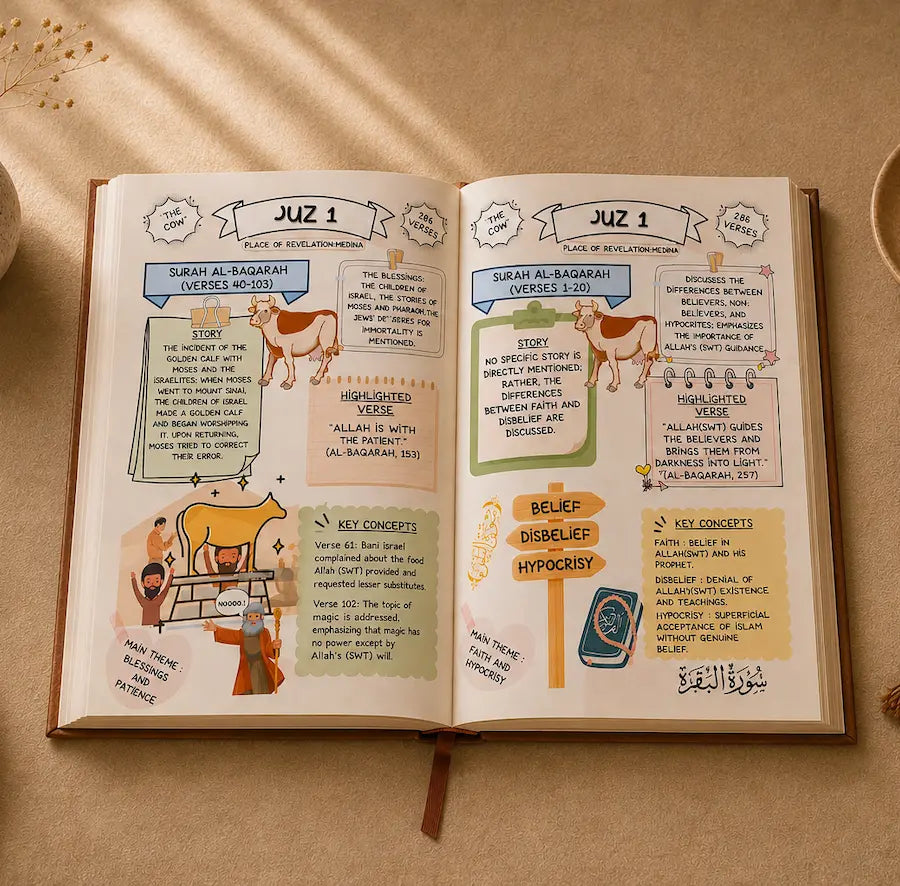 "THE
COW"
JUZ 1
286
VERSES
PLACE OF REVELATION:MEDINA
SURAH AL-BAQARAH
(VERSES 40-103)
THE BLESSINGS:
THE CHILDREN OF
ISRAEL, THE STORIES OF
MOSES AND PHARAOH.THE
JEWS' DE
FOR
IMMORTALITY IS
MENTIONED.
STORY
THE INCIDENT OF THE
GOLDEN CALF WITH
MOSES AND THE
ISRAELITES; WHEN MOSES
WENT TO MOUNT SINAI,
THE CHILDREN OF ISRAEL
MADE A GOLDEN CALF
AND BEGAN WORSHIPPING
IT. UPON RETURNING,
MOSES TRIED TO CORRECT
THEIR ERROR.
HIGHLIGHTED
VERSE
"ALLAH IS WITH
THE PATIENT."
(AL-BAQARAH, 153)
NOOOO.!
MAIN THEME :
BLESSINGS
AND
PATIENCE
KEY CONCEPTS
Verse 61: Bani israel
complained about the food
Allah (SWT) provided and
requested lesser substitutes.
Verse 102: The topic of
magic is addressed,
emphasizing that magic has
no power except by
Allah's (SWT) will.
"THE
COW"
JUZ 1
286
VERSES
PLACE OF REVELATION:MEDINA
SURAH AL-BAQARAH
(VERSES 1-20)
DISCUSSES THE
DIFFERENCES BETWEEN
BELIEVERS, NON-
BELIEVERS, AND
HYPOCRITES; EMPHASIZES
THE IMPORTANCE OF
ALLAH'S (SWT) GUIDANCE
STORY
NO SPECIFIC STORY IS
DIRECTLY MENTIONED;
RATHER, THE
DIFFERENCES
BETWEEN FAITH AND
DISBELIEF ARE
DISCUSSED.
HIGHLIGHTED
VERSE
"ALLAH(SWT) GUIDES
THE BELIEVERS AND
BRINGS THEM FROM
DARKNESS INTO LIGHT."
"(AL-BAQARAH, 257)
BELIEF
DISBELIEF
HYPOCRISY
MAIN THEME :
FAITH AND
HYPOCRISY
KEY CONCEPTS
FAITH : BELIEF IN
ALLAH(SWT) AND HIS
PROPHET.
DISBELIEF : DENIAL OF
ALLAH'(SWT) EXISTENCE
AND TEACHINGS.
HYPOCRISY : SUPERFICIAL
ACCEPTANCE OF ISLAM
WITHOUT GENUINE
BELIEF.
سُورَةُ الْبَقَرَة